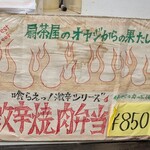 扇茶屋のオヤジからの果たし
"喰らえっ!激辛シリーズ"
激辛焼肉弁当
¥850